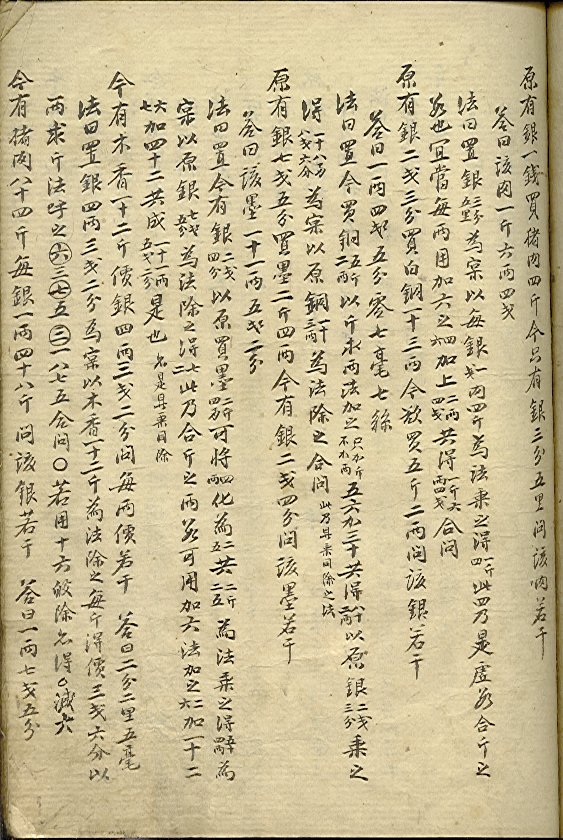 原有銀一錢買猪肉四斤今只有銀三分五里问該肉若干
答曰該肉一斤六两四戋
法曰置銀三分五里為实以每銀一戋肉四斤為法乘之得一斤四此四乃是虚数合斤之
数也宜當每两用加六之四加上二两四戋共得一斤六两四戋合问
原有銀二戋三分買白銅一十三两今欲買五斤二两问該銀若干
答曰一两四戋五分零七毫七絲
法曰置今買銅五斤二两以斤求两法加之只加斤不加两五六加三十共得八十二两以原銀二戋三分乘之
得一十八两八戋六分為实以原銅一十三两為法除之合问此乃异乘同除之法
原有銀七戋五分買墨二斤四两今有銀二戋四分问該墨若干
答曰該墨一十一两五戋二分
法曰置今有銀二戋四分以原買墨二斤四两可將四两化為二五共二斤二五為法乘之得五十四两為
实以原銀七戋五分為法除之得七二此乃合斤之两数可用加六法加之二六加一十二
六七加四十二共成一十一两五戋二分是也亦是异乘同除
今有木香一十二斤價銀四两三戋二分问每两價若干 答曰二分二里五毫
法曰置銀四两三戋二分為实以木香一十二斤為法除之每斤得價三戋六分以
两求斤法呼之六三七五三一八七五合问○若用十六歸除亦得○減六
今有猪肉八十四斤每銀一两四十八斤问該銀若干 答曰一两七戋五分